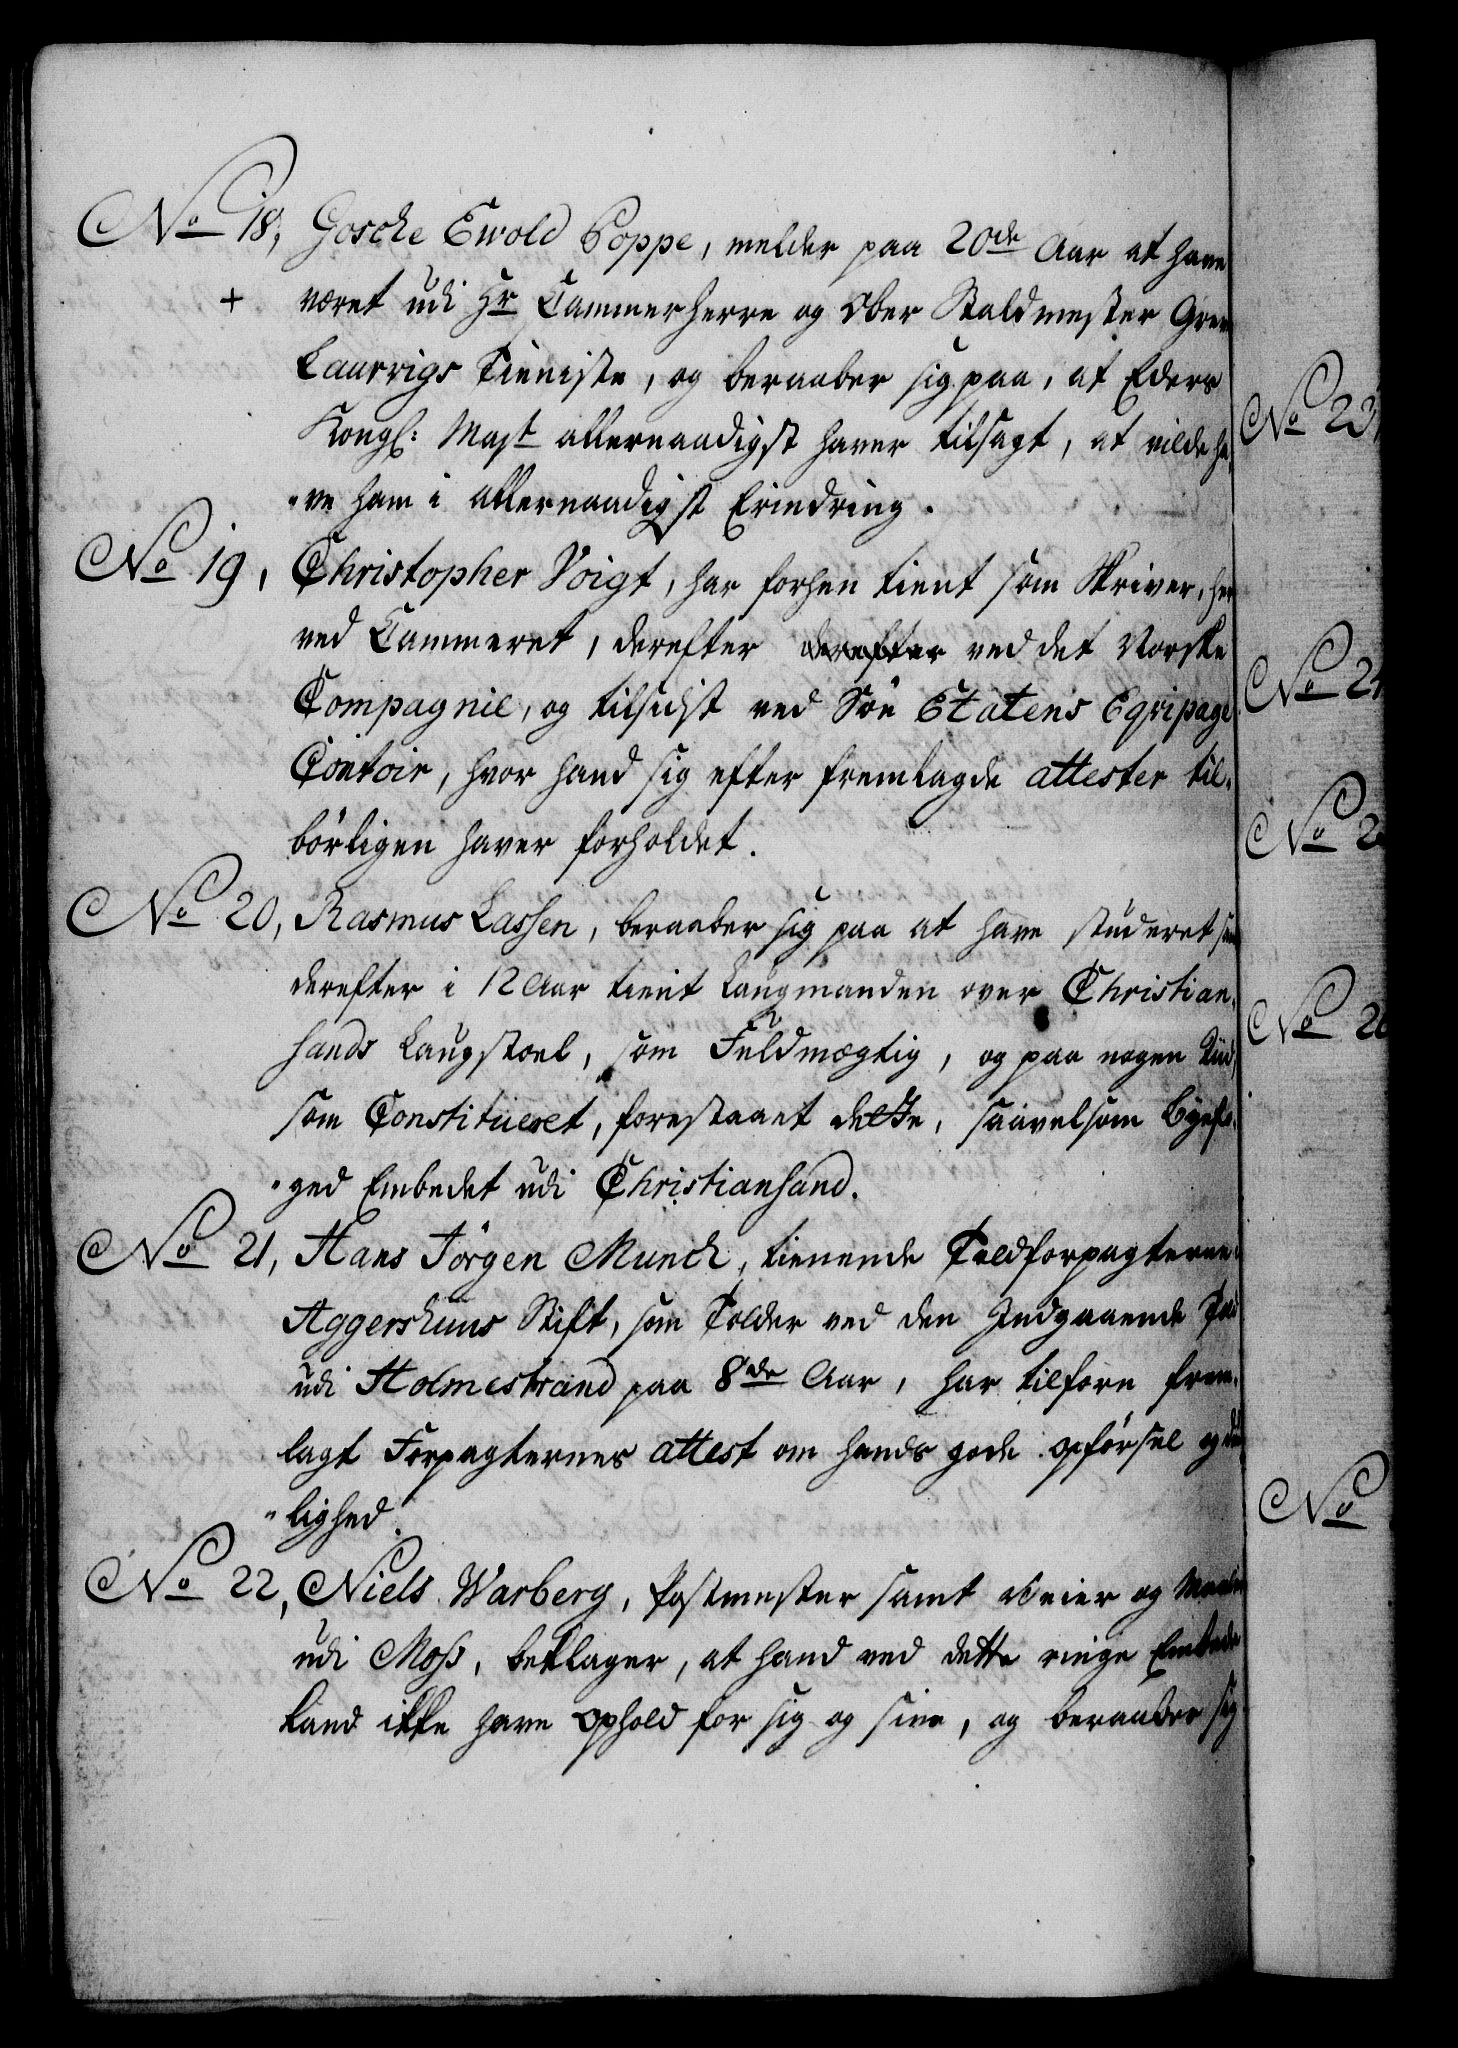 No 18, Gosche Ewold Poppe, melder paa 20de Aar at have
+ været udi Hr Cammerherre og Ober Staldmester Grev
Laurvigs Tieniste, og beraaber sig paa, at Eders
Kongl: Mayt allernaadigst haver tilsagt, at vilde ha¬
"ve ham i allernaadigst Erindring.
No 19, Christopher Voigt, har forhen tient som Skriver, her
ved Cammeret, derefter derefter ved det Norske
Compagnie, og tilsidst ved Söe Etatens Eqvipage
Contoir, hvor hand sig efter fremlagde attester til¬
börligen haver forholdet.
No 20, Rasmus Lassen, beraaber sig paa at have studeret
derefter i 12 Aar tient Laugmanden over Christian¬
sands Laugstoel, som Fuldmægtig, og paa nogen Tiid,
som Constitueret, forestaaet dette, saavelsom Byefo¬
"ged Embedet udi Christiansand.
No 21, Hans Jörgen Munch, tienende Toldforpagterne
Aggershuus Stift, som Tolder ved den Indgaaende
udi Holmestrand paa 8de Aar, har tilforn frem¬
lagt Forpagternes attest om hands gode opförsel og
"lighed.
No 22, Niels Warberg, Postmester samt Veier og Maaler
udi Moss, beklager, at hand ved dette ringe Embede
kand ikke have Ophold for sig og sine, og beraaber sig
No 23,
No 24
No 2
No 26
No